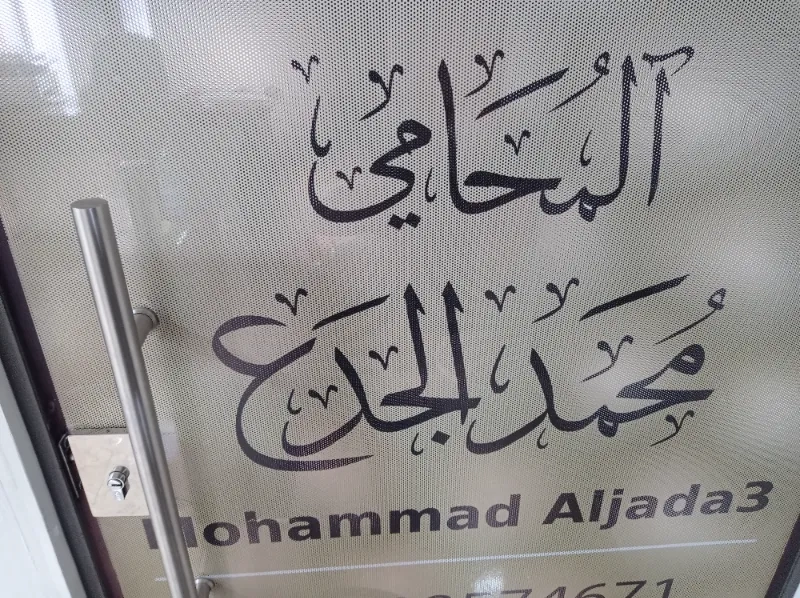 المحامي
محمد الجدع
Mohammad Aljada3
8574671